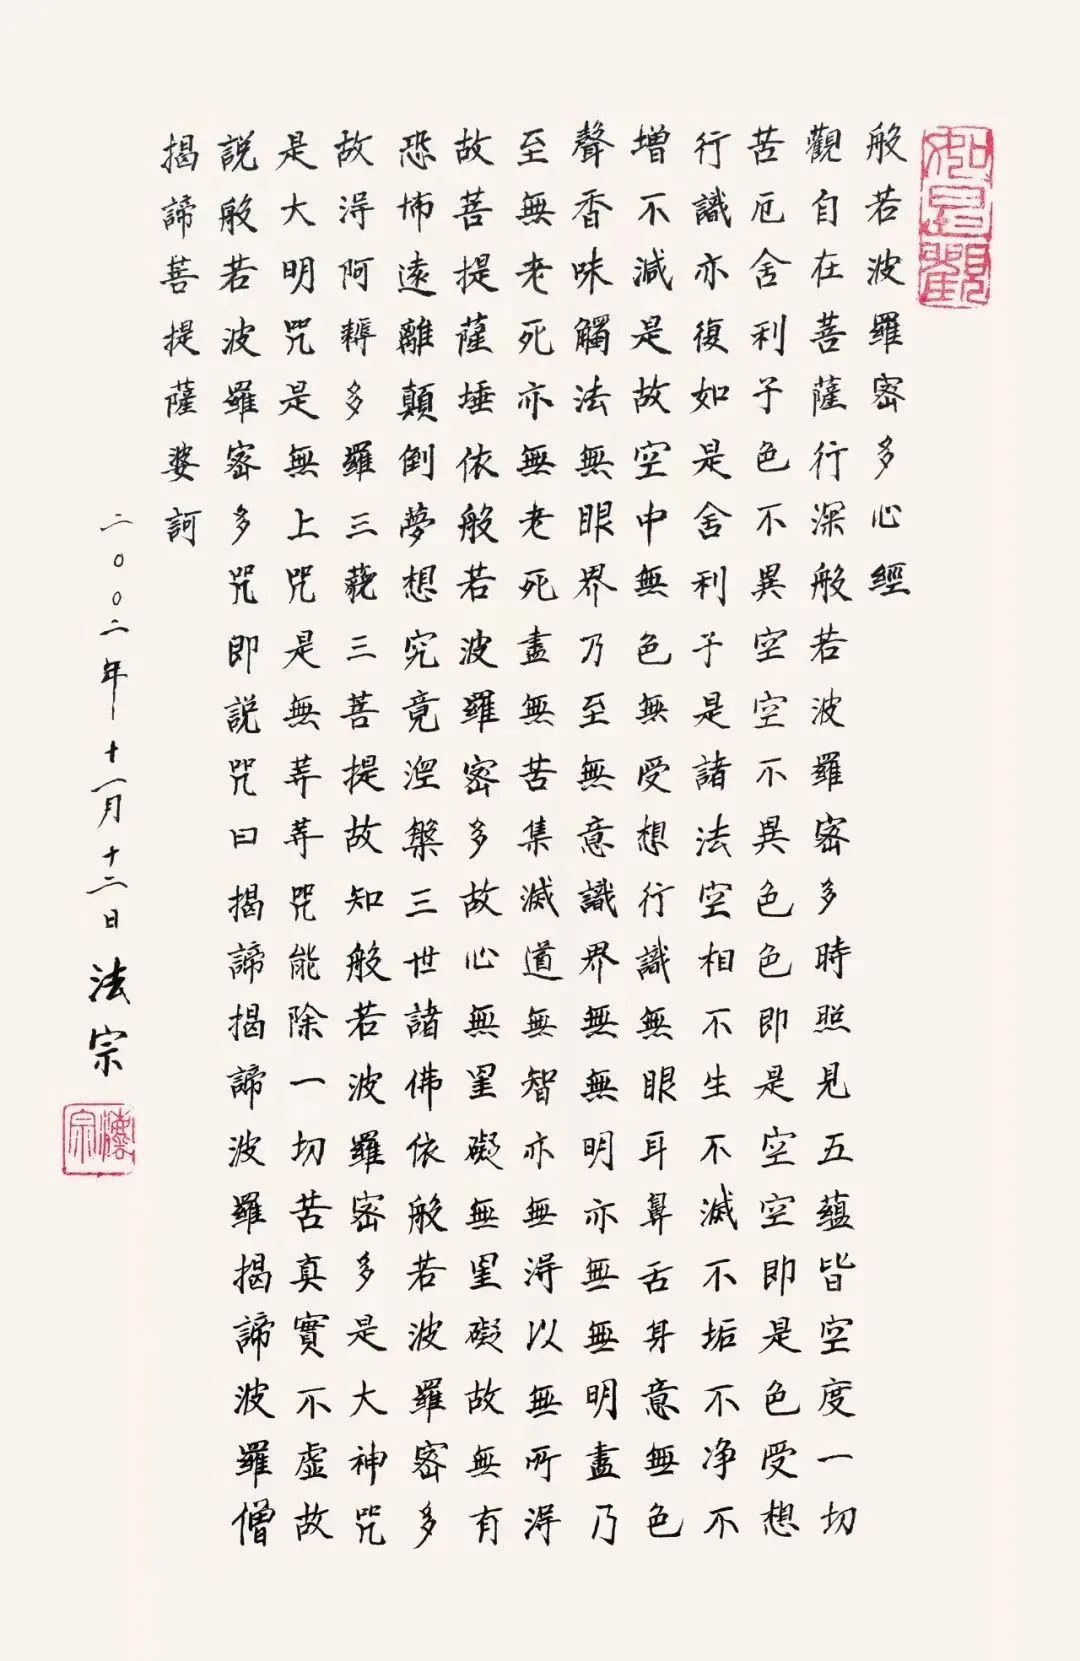 如是觀
般若波羅密多心經
觀自在菩薩行深般若波羅密多時照見五蘊皆空度一切
苦厄舍利子色不異空空不異色色即是空空即是色受想
行識亦復如是舍利子是諸法空相不生不滅不垢不净不
增不減是故空中無色無受想行識無眼耳鼻舌身意無色
聲香味觸法無眼界乃至無意識界無無明亦無無明盡乃
至無老死亦無老死盡無苦集滅道無智亦無得以無所得
故菩提薩埵依般若波羅密多故心無罣礙無罣礙故無有
恐怖遠離顛倒夢想究竟涅槃三世諸佛依般若波羅密多
故得阿耨多羅三藐三菩提故知般若波羅密多是大神咒
是大明咒是無上咒是無等等咒能除一切苦真實不虛故
說般若波羅密多咒即說咒曰揭諦揭諦波羅揭諦波羅僧
揭諦菩提薩婆訶
二〇〇二年十一月十二日法宗
灋宗